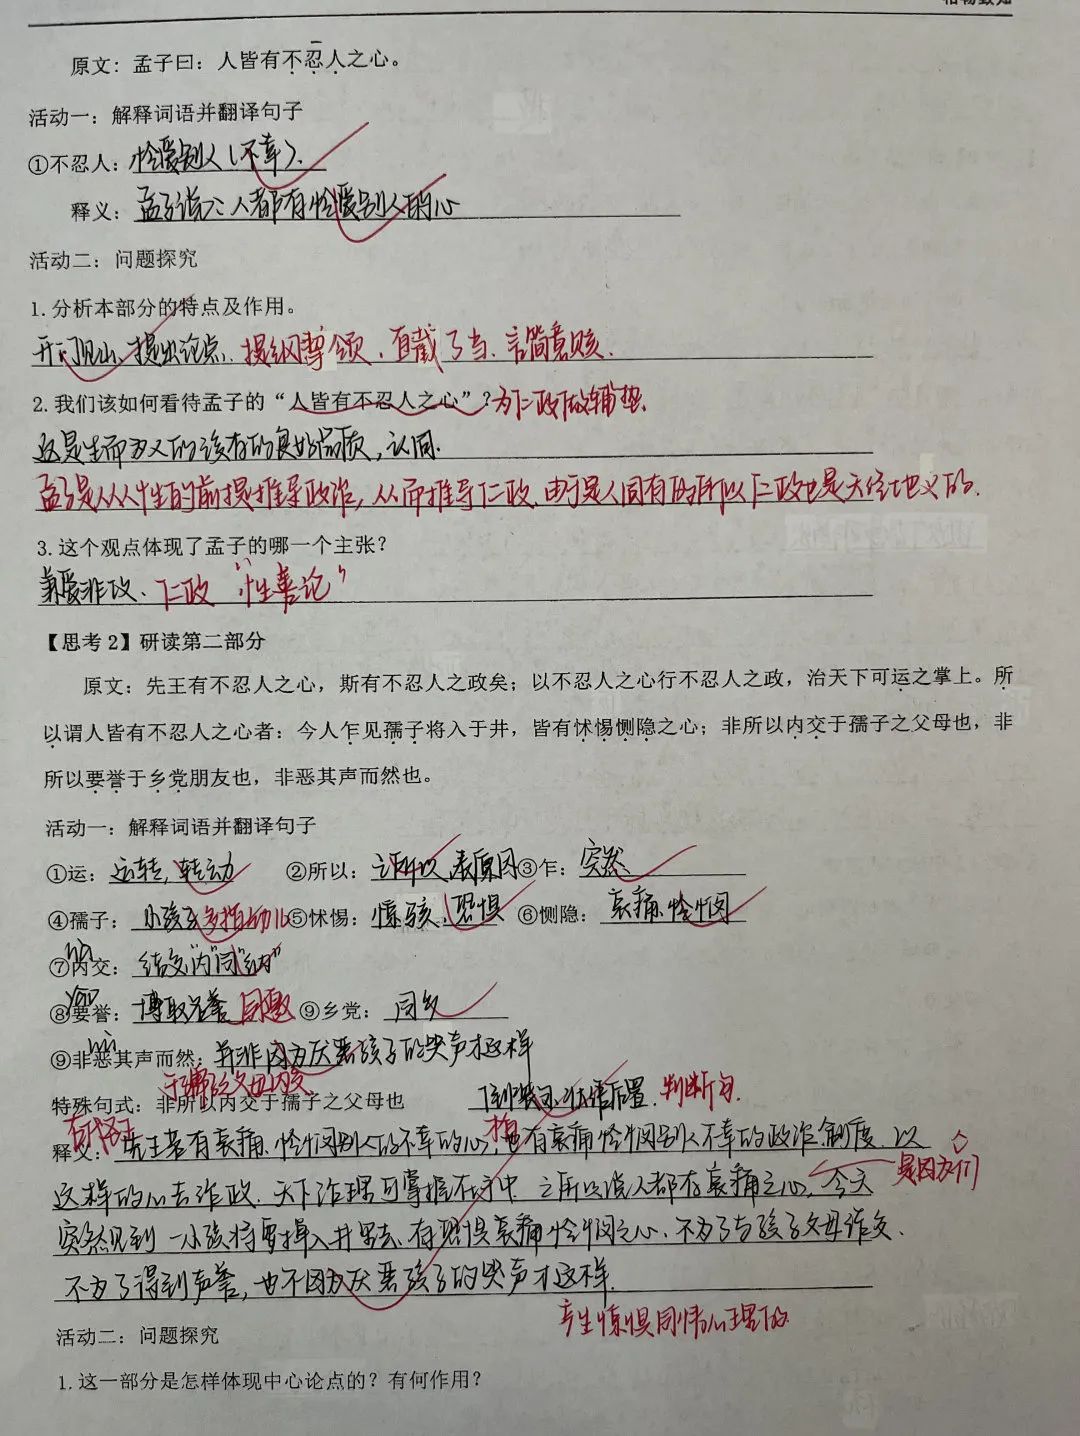 原文：孟子曰：人皆有不忍人之心。
活动一：解释词语并翻译句子
①不忍人：怜爱别人（不幸）.
释义：孟子说：人都有怜爱别人的心
活动二：问题探究
1.分析本部分的特点及作用。
开门见山、提出论点、提纲挈领、直截了当、言简意赅.
2.我们该如何看待孟子的“人皆有不忍人之心”？为仁政做铺垫.
这是生而为人的该有的良好品质，认同.
孟子是从人性的前提推导政治，从而推导仁政.由于是人固有的所以仁政也是天经地义的.
3.这个观点体现了孟子的哪一个主张？
兼爱非攻、仁政 “性善论”
【思考2】研读第二部分
原文：先王有不忍人之心，斯有不忍人之政矣；以不忍人之心行不忍人之政，治天下可运之掌上。所
以谓人皆有不忍人之心者：今人乍见孺子将入于井，皆有怵惕恻隐之心；非所以内交于孺子之父母也，非
所以要誉于乡党朋友也，非恶其声而然也。
活动一：解释词语并翻译句子
①运：运转，转动 ②所以：之所以，表原因 ③乍：突然
④孺子：小孩子多指幼儿 ⑤怵惕：惊骇、恐惧 ⑥恻隐：哀痛.怜悯
⑦内交：结交“内”同“纳”
⑧要誉：博取名誉 同邀 ⑨乡党：同乡
⑨非恶其声而然：并非因为厌恶孩子的哭声才这样
特殊句式：非所以内交于孺子之父母也 状语后置.判断句.
释义：先王若有哀痛、怜悯别人的不幸的心，也有哀痛怜悯别人不幸的政治制度.以
这样的心去治政、天下治理可掌握在手中 之所以说人都有哀痛之心，今天 是因为 们
突然见到一小孩将要掉入井里去、有恐惧哀痛怜悯之心、不为了与孩子父母结交、
不为了得到声誉，也不因为厌恶孩子的哭声才这样.
产生惊惧同情心理的
活动二：问题探究
1.这一部分是怎样体现中心论点的？有何作用？